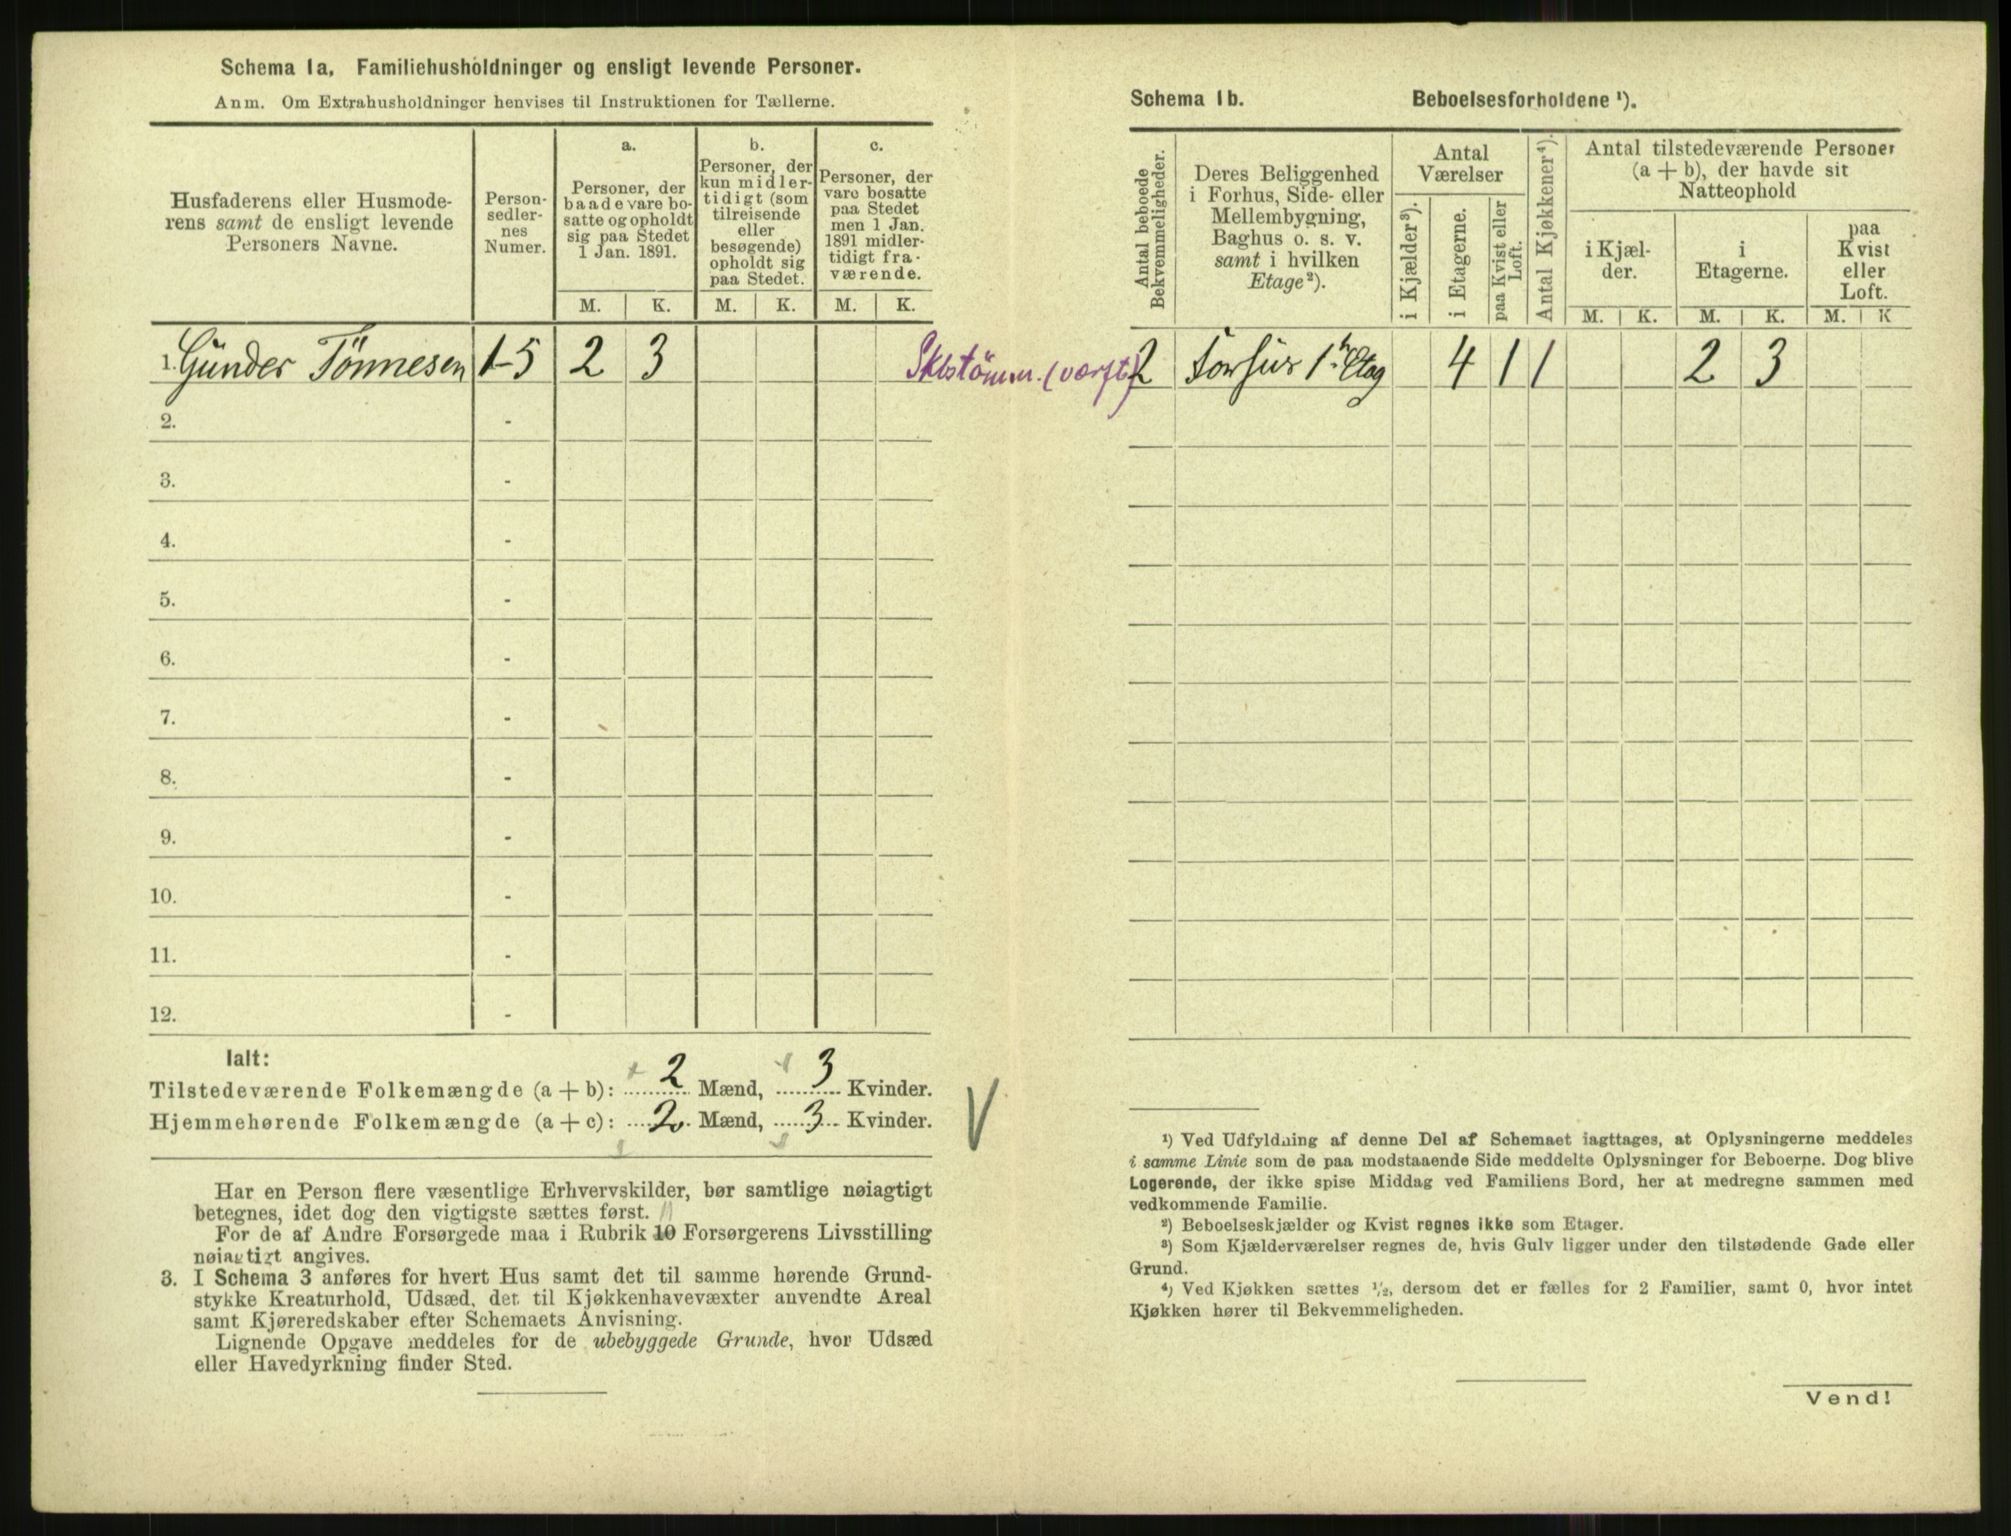 Schema 1a, Familiehusholdninger og ensligt levende Personer.
Anm. Om Extrahusholdninger henvises til Instruktionen for Tællerne.
Husfaderens eller Husmode-
rens samt de ensligt levende
Personers Navne.
Person-
sedler-
nes
Numer.
a.
Personer, der
baade vare bo-
satte og opholdt
sig paa Stedet
1 Jan. 1891.
b.
Personer, der
kun midler-
tidigt (som
tilreisende
eller
besøgende)
opholdt sig
paa Stedet.
c.
Personer, der
vare bosatte
paa Stedet
men 1 Jan.
1891 midler-
tidigt fra-
værende.
M. K. M. K. M. K.
1. Günder Tönnesen 1-5 2 3
2. -
3. -
4. -
5. -
6. -
7. -
8. -
9. -
10. -
11. -
12. -
Ialt:
Tilstedeværende Folkemængde (a + b): 2 Mænd, 3 Kvinder.
Hjemmehørende Folkemængde (a + c): 2 Mænd, 3 Kvinder.
Har en Person flere væsentlige Erhvervskilder, bør samtlige nøiagtigt
betegnes, idet dog den vigtigste sættes først.
For de af Andre Forsørgede maa i Rubrik 10 Forsørgerens Livsstilling
nøiagtigt angives.
3. I Schema 3 anføres for hvert Hus samt det til samme hørende Grund-
stykke Kreaturhold, Udsæd, det til Kjøkkenhavevæxter anvendte Areal
samt Kjøreredskaber efter Schemaets Anvisning.
Lignende Opgave meddeles for de ubebyggede Grunde, hvor Udsæd
eller Havedyrkning finder Sted.
Schema 1b. Beboelsesforholdene ¹).
Antal beboede
Bekvemmeligheder.
Deres Beliggenhed
i Forhus, Side- eller
Mellembygning,
Baghus o. s. v.
samt i hvilken
Etage ²).
Antal
Værelser
i Kjælder ³).
i Etagerne.
paa Kvist eller
Loft.
Antal Kjøkkener ⁴).
Antal tilstedeværende Personer
(a + b), der havde sit
Natteophold
i Kjæl-
der.
i
Etagerne.
paa
Kvist
eller
Loft.
M. K. M. K. M. K
Skbstömm. (værft) 2 Forhus 1ste Etag 4 1 1 2 3
¹) Ved Udfyldning af denne Del af Schemaet iagttages, at Oplysningerne meddeles
i samme Linie som de paa modstaaende Side meddelte Oplysninger for Beboerne. Dog blive
Logerende, der ikke spise Middag ved Familiens Bord, her at medregne sammen med
vedkommende Familie.
²) Beboelseskjælder og Kvist regnes ikke som Etager.
³) Som Kjælderværelser regnes de, hvis Gulv ligger under den tilstødende Gade eller
Grund.
⁴) Ved Kjøkken sættes ½, dersom det er fælles for 2 Familier, samt 0, hvor intet
Kjøkken hører til Bekvemmeligheden.
Vend!